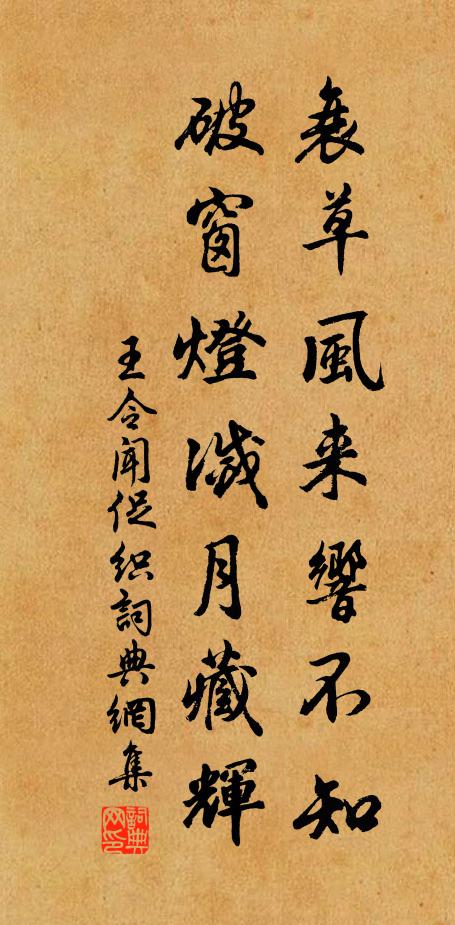 衰草風来響不知
破窗燈滅月藏輝
王令聞促织詞典網集
詞典网印